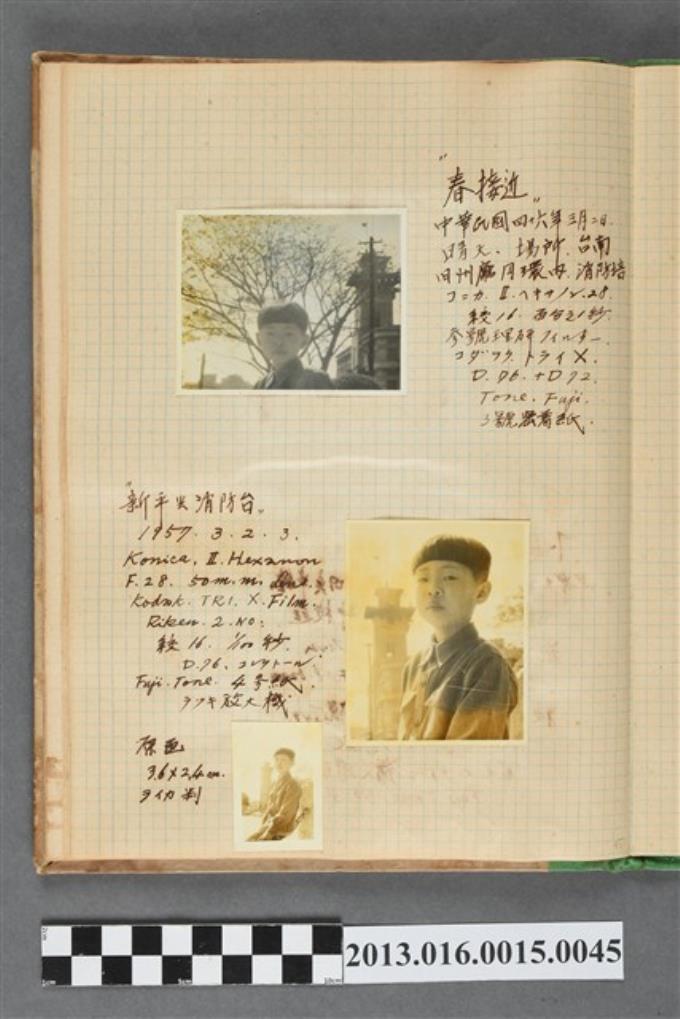 "春接近"
中華民國四十六年三月二日.
晴天. 場所. 台南
日州廳円環内. 消防塔
コニカ. Ⅱ. ヘキサノン. 28.
絞 16. 百分之1秒
参號理研フィルター.
コダック. トライ X.
D. 76. + D 72.
Tone. Fuji.
3號密着紙.
"新平与消防台"
1957. 3. 2. 3.
Konica. Ⅱ. Hexanon
F. 28. 50 m.m.
Kodak. TRI. X. Film.
Riken. 2. No:
絞 16. 1/100 秒.
D. 76. コレクトール.
Fuji. Tone. 4 号紙.
ラッキ放大機
原画
3.6 x 2.4 cm.
ライカ判
2013.016.0015.0045